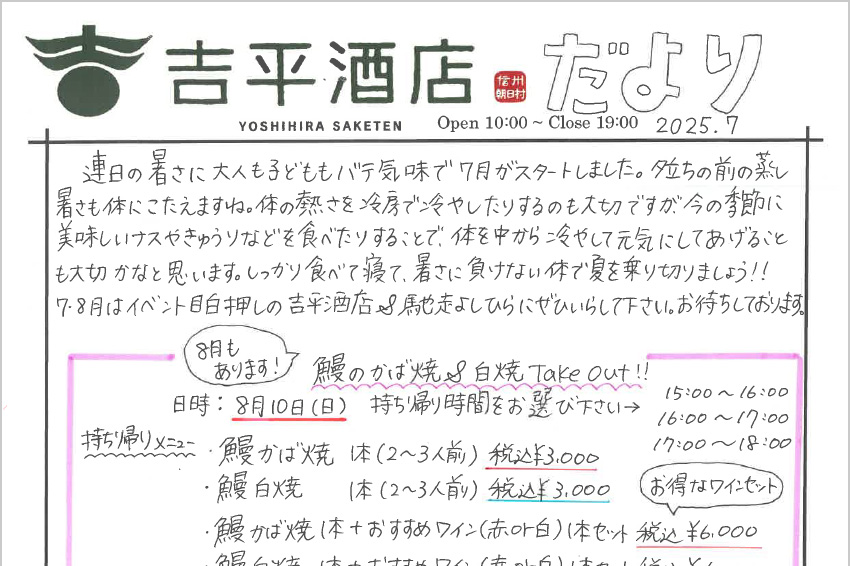 吉平酒店 信州朝日村 だより
YOSHIHIRA SAKETEN Open 10:00 ~ Close 19:00 2025.7
連日の暑さに大人も子どももバテ気味で7月がスタートしました。夕立ちの前の蒸し
暑さも体にこたえますね。体の熱さを冷房で冷やしたりするのも大切ですが、今の季節に
美味しいナスやきゅうりなどを食べたりすることで、体を中から冷やして元気にしてあげること
も大切かなと思います。しっかり食べて寝て、暑さに負けない体で夏を乗り切りましょう!!
7・8月はイベント目白押しの吉平酒店&馳走よしひらにぜひいらして下さい。お待ちしております。
8月も
あります!
鰻のかば焼&白焼Take Out!!
日時:8月10日(日) 持ち帰り時間をお選び下さい→
15:00~16:00
16:00~17:00
17:00~18:00
持ち帰りメニュー
・鰻かば焼 1本(2~3人前) 税込¥3,000
・鰻白焼 1本(2~3人前) 税込¥3,000
お得なワインセット
・鰻かば焼1本+おすすめワイン(赤or白)1本セット 税込¥6,000